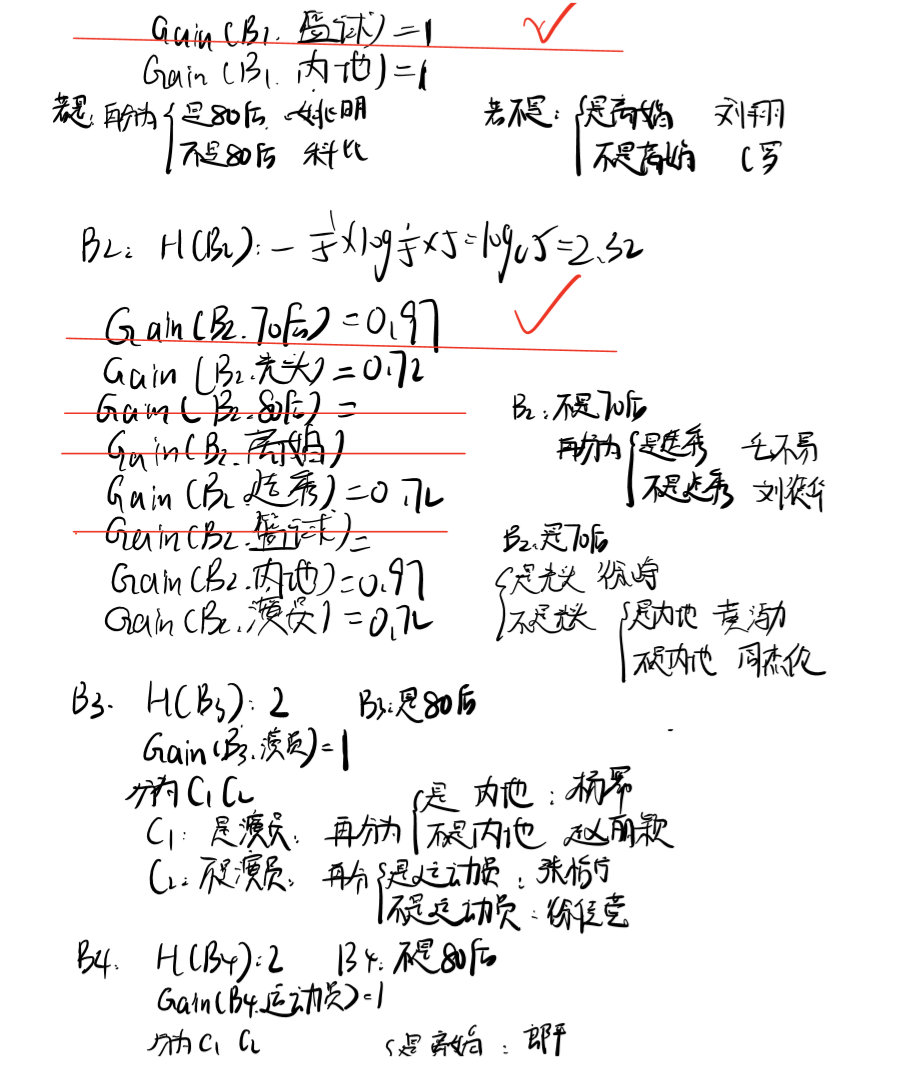 Gain(B1.篮球)=1
Gain(B1.内地)=1
若是:再分为{是80后 姚明
不是80后 科比
若不是:{是离婚 刘翔
不是离婚 C罗
B2: H(B2):-1/5×log1/5×5=log25=2.32
Gain(B2.70后)=0.97
Gain(B2.光头)=0.72
Gain(B2.80后)=
Gain(B2.离婚)
Gain(B2.选秀)=0.72
Gain(B2.篮球)=
Gain(B2.内地)=0.97
Gain(B2.演员)=0.72
B2:不是70后
再分为{是选秀 毛不易
不是选秀 刘德华
B2:是70后
{是光头 徐峥
不是光头 {是内地 黄渤
不是内地 周杰伦
B3. H(B3):2 B3:是80后
Gain(B3.演员)=1
分为C1 C2
C1:是演员:再分为{是 内地:杨幂
不是内地 赵丽颖
C2:不是演员:再分{是运动员:张怡宁
不是运动员:徐佳莹
B4. H(B4):2 B4:不是80后
Gain(B4.运动员)=1
分为C1 C2 {是离婚:郎平